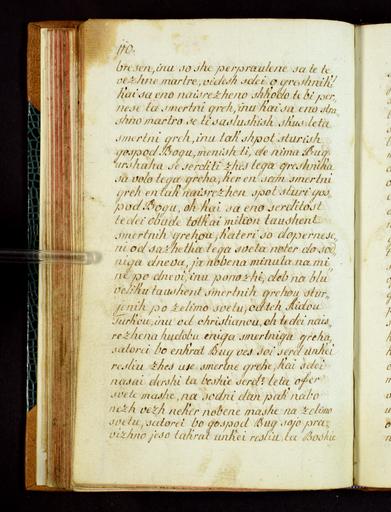 110.
bresen, inu so she perpraulene sa te te
vezhne martre, vidish sdei o greshnik!
kai sa eno naisrezheno shkodo tebi per,,
nese ta smertni greh, inu kai sa eno stra,,
shno martro se ti saslushish skus leta
smertni greh, inu tak shpot sturish
gospod Bogu, menish ti, de nima Bug
urshaha se serditi zhes tega greshnika
sa volo tega greha, kir en sam smertni
greh en tak naisrezhen spot sturi gos,,
pod Bogu, oh kai sa eno serditost
tedei obude tolkai milion taushent
smertnih grehou, kateri so dopernese,,
ni od sazhetka tega sveta noter do so,,
niga dneva, ja nobena minuta na mi,,
ne po dnevi, inu ponozhi, deb na blu
veliku taushent smertnih grehou stur,,
jenih po zelimo svetu, od teh Judou
Turkou, inu od christianou, oh tedei nais,,
rezhena hudoba eniga smertniga greha,
satorei bo enkrat Bug ves soi serd unkei
resliu zhes use smertne grehe, kai sdei
nasai dershi ta boshie serd leta ofer
svete mashe, na sodni dan pak na bo
nezh vezh neker nobene mashe na zelimo
svetu, satorei bo gospod Bug sojo pra,,
vizhno jeso takrat unkei resliu, ta Boshia